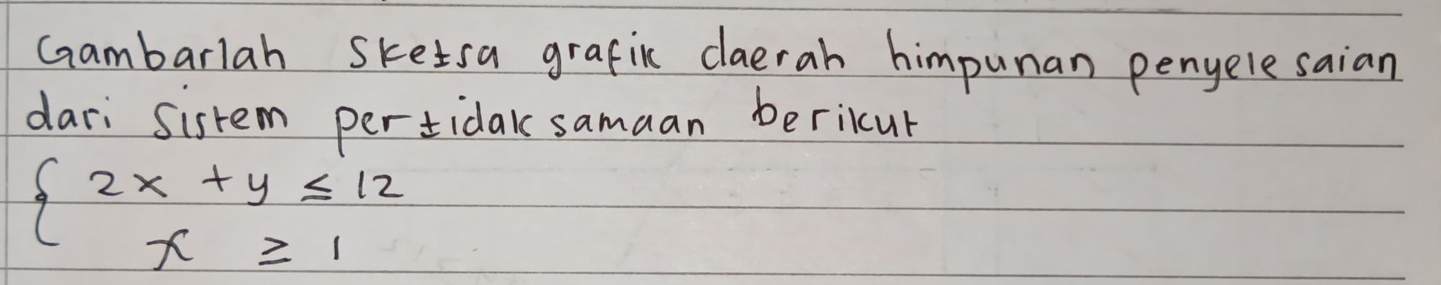 Gambarlah sketsa grafik daerah himpunan penyelesaian
dari sistem pertidaksamaan berikut
{ 2x + y ≤ 12
x ≥ 1